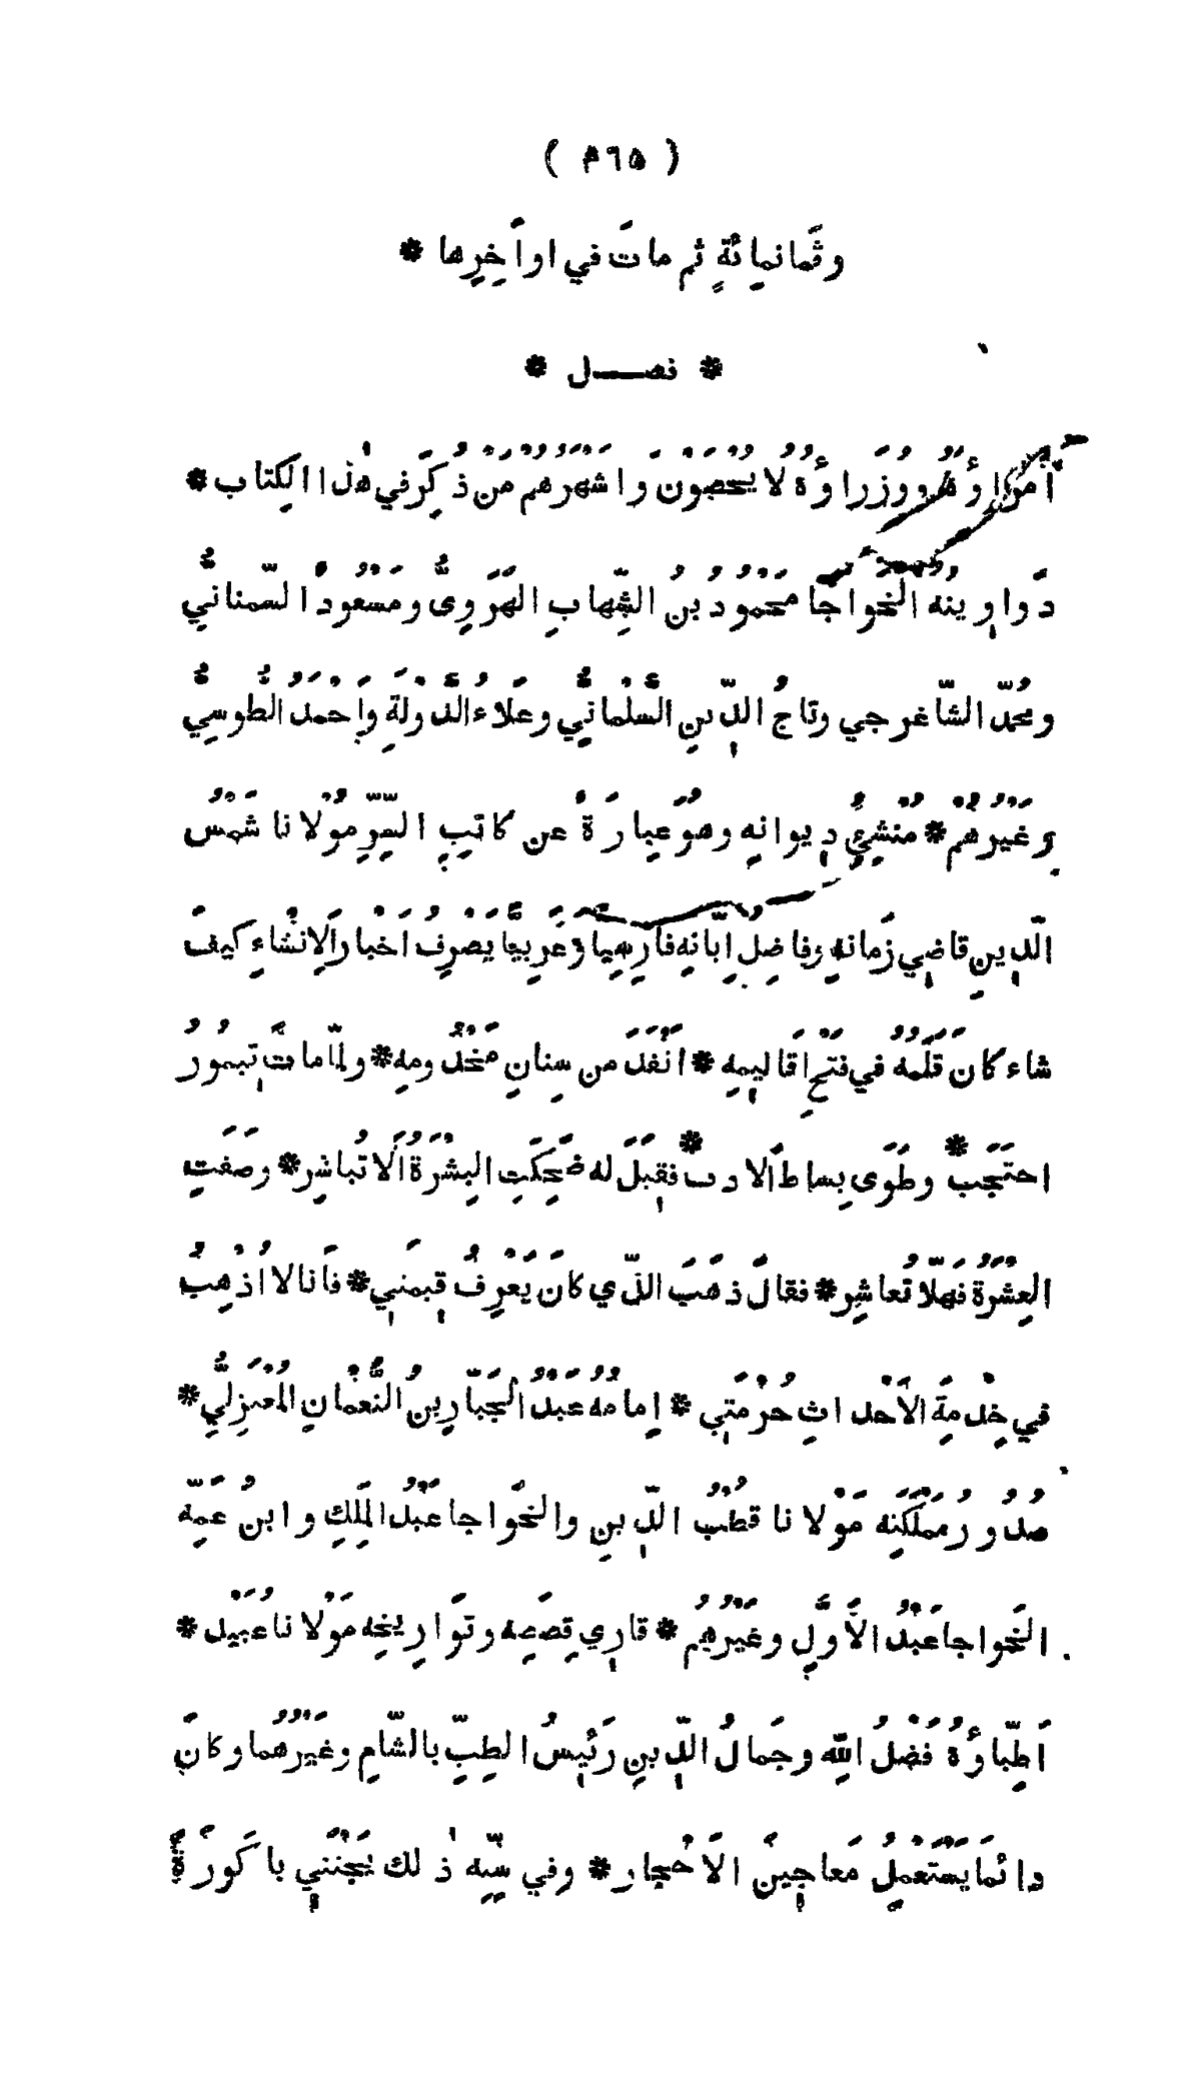 ( ٤٦٥ )
وثَمانمِائةٍ ثم ماتَ في اواَخِرِها *
* فصـــل *
اُمَراؤُهُ ووُزَراؤُهُ لا يُحْصَوْنَ واشْهَرُهم مَنْ ذُكِرَ في هٰذا الكِتابِ *
دَواوِينُه الخواجَا مَحْمُودُ بنُ الشِّهابِ الهَرَوِيُّ ومَسْعُودُ السّمنانيُّ
ومحمّدُ الشّاغرجي وتاجُ الدِّينِ السَّلْمانِيُّ وعَلاءُ الدَّوْلَةِ واَحْمَدُ الطُّوسِيُّ
وغَيْرُهُمْ * مُنْشِئُ دِيوانِه وهُوَ عِبارَةٌ عن كاتِبِ السِّرِّ مَوْلانا شَمْسُ
الدِّينِ قاضِي زَمانِه وفاضِلُ اِبّانِه فارِسِيًّا وعَرَبِيًّا يَصْرِفُ اَخْبارَ الاِنْشاءِ كيفَ
شاءَ كانَ قَلَمُهُ في فَتْحِ اَقَالِيمِه * اَنْفَذَ من سِنانِ مَخْدُومِه * ولمّا ماتَ تيمُورُ
احتَجَبَ * وطَوَى بِساطَ الاَدبَ * فقِيلَ له ضَحِكَتِ البِشْرَةُ اَلا تُباشِر * وصَفَتِ
العِشْرَةُ فهَلّا تُعاشِر * فقالَ ذهَبَ الذّي كانَ يَعْرِفُ قِيمَتي * فاَنا لا اُذْهِبُ
في خِدْمَةِ الاَحْداثِ حُرْمَتي * اِمامُهُ عَبْدُ الجَبّارِ بنُ النُّعْمانِ المُعْتزِليُّ *
صُدُورُ مَمْلَكَتِه مَوْلانا قُطْبُ الدِّينِ والخَواجا عَبْدُ المَلِكِ وابنُ عَمِّه
الخَواجا عَبْدُ الاَوَّلِ وغَيْرُهُم * قارِي قِصَصِه وتَوارِيخِه مَوْلانا عُبَيْد *
اَطِبّاؤُهُ فَضْلُ اللّهِ وجَمالُ الدِّينِ رَئِيسُ الطِبِّ بالشّامِ وغَيْرُهُما وكانَ
دائمَا يَسْتَعْمِلُ مَعاجِينَ الاَحْجار * وفي سِنِّه ذٰلك يَجْتَني باكَورَةَ